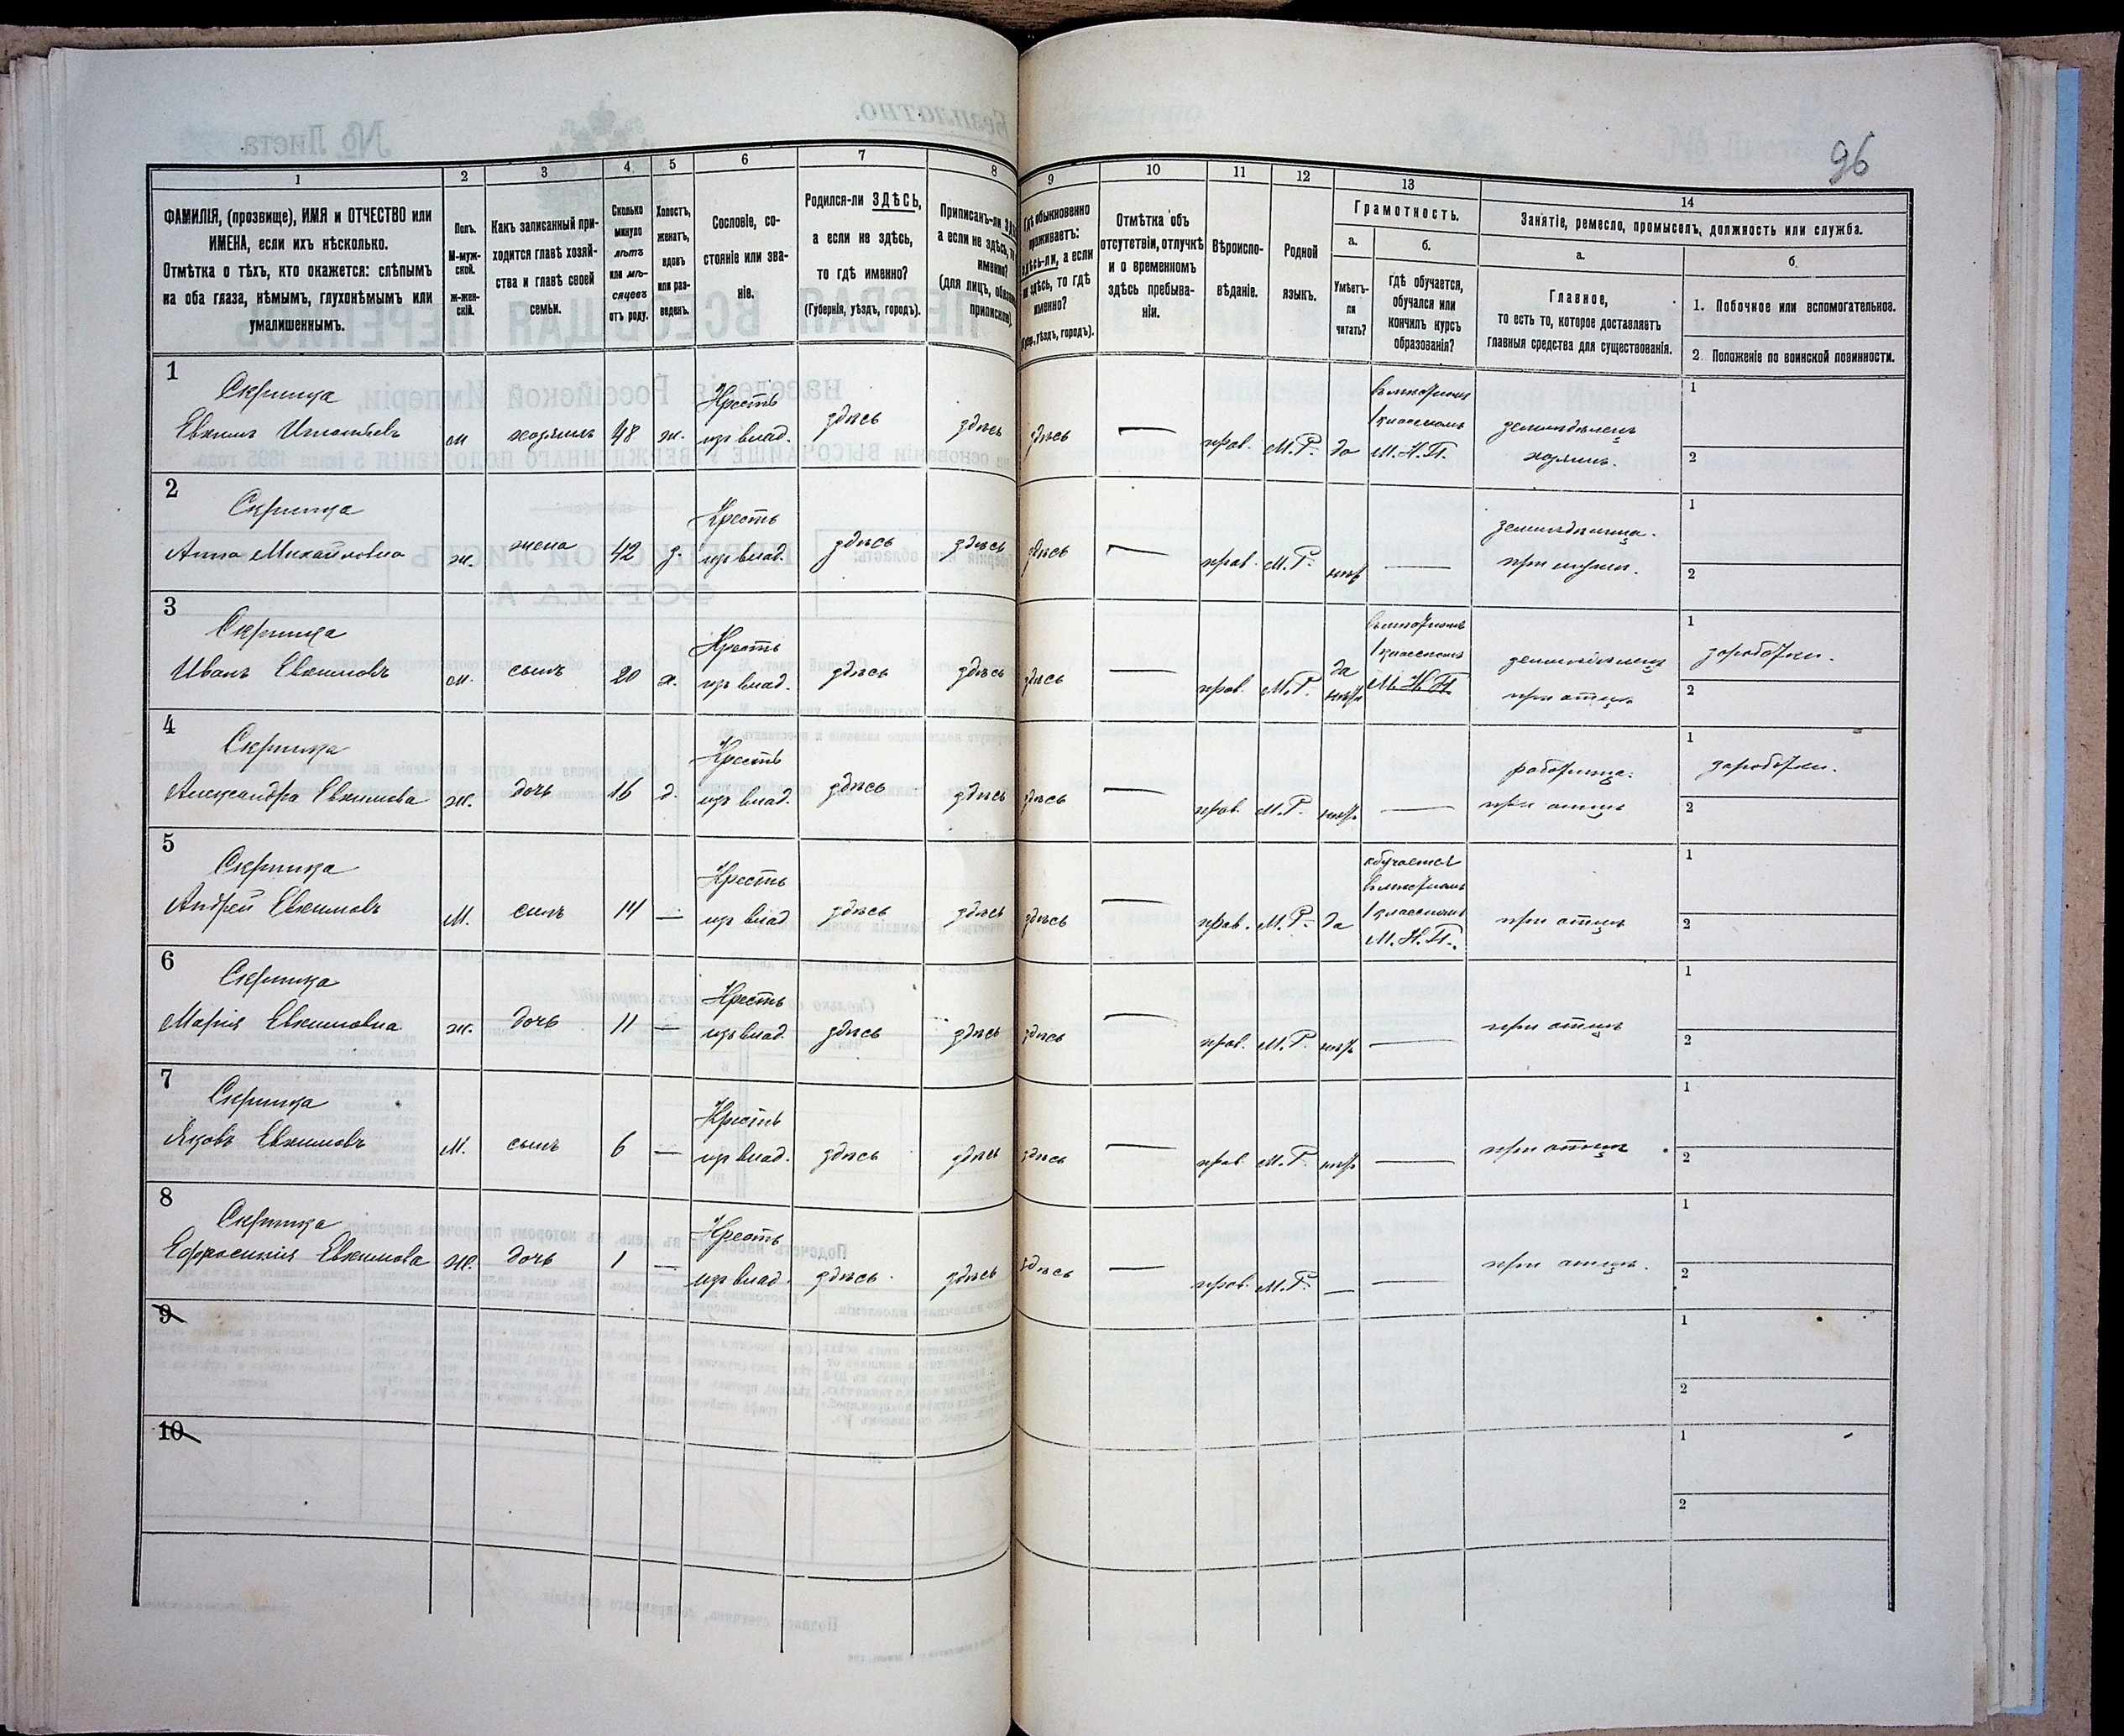 96
1
2
3
4
5
6
7
8
9
10
11
12
13
14
ФАМИЛІЯ, (прозвище), ИМЯ и ОТЧЕСТВО или
ИМЕНА, если ихъ нѣсколько.
Отмѣтка о тѣхъ, кто окажется: слѣпымъ
на оба глаза, нѣмымъ, глухонѣмымъ или
умалишеннымъ.
Полъ.
М-муж-
ской.
ж-жен-
скій.
Какъ записанный при-
ходится главѣ хозяй-
ства и главѣ своей
семьи.
Сколько
минуло
лѣтъ
или мѣ-
сяцевъ
отъ роду.
Холостъ,
женатъ,
вдовъ
или раз-
веденъ.
Сословіе, со-
стояніе или зва-
ніе.
Родился-ли ЗДѢСЬ,
а если не здѣсь,
то гдѣ именно?
(Губернія, уѣздъ, городъ).
Приписанъ-ли
а если не здѣсь,
именно?
(для лицъ,
Гдѣ обыкновенно
проживаетъ:
здѣсь-ли, а если
не здѣсь, то гдѣ
именно?
уѣздъ, городъ).
Отмѣтка объ
отсутствіи, отлучкѣ
и о временномъ
здѣсь пребыва-
ніи.
Вѣроиспо-
вѣданіе.
Родной
языкъ.
Грамотность.
а.
Умѣетъ-
ли
читать?
б.
Гдѣ обучается,
обучался или
кончилъ курсъ
образованія?
Занятіе, ремесло, промыселъ, должность или служба.
а.
Главное,
то есть то, которое доставляетъ
главныя средства для существованія.
б
1. Побочное или вспомогательное.
2. Положеніе по воинской повинности.
1
Скрипка
Евкимъ Игнатьевъ
м
хозяинъ
48
ж.
Крестъ
изъ влад.
здѣсь
здѣсь
здѣсь
—
прав.
М.Р.
да
1 классномъ
М.Н.П.
земледѣлецъ
хозяинъ.
1
2
2
Скрипка
Анна Михайловна
ж.
жена
42
з.
Крестъ
изъ влад.
здѣсь
здѣсь
здѣсь
—
прав.
М.Р.
нѣтъ
—
при мужѣ.
1
2
3
Скрипка
Иванъ Евкимовъ
м.
сынъ
20
х.
Крестъ
изъ влад.
здѣсь
здѣсь
здѣсь
—
прав.
М.Р.
да
нѣтъ
1 классномъ
М.Н.П.
земледѣлецъ
при отцѣ
1
заработки.
2
4
Скрипка
Александра Евкимова
ж.
дочь
16
д.
Крестъ
изъ влад.
здѣсь
здѣсь
здѣсь
—
прав.
М.Р.
нѣтъ
—
работница.
при отцѣ
1
заработки.
2
5
Скрипка
Андрей Евкимовъ
М.
сынъ
14
—
Крестъ
изъ влад
здѣсь
здѣсь
здѣсь
—
прав.
М.Р.
да
обучается
1 классномъ
М.Н.П.
при отцѣ
1
2
6
Скрипка
Марія Евкимовна
ж.
дочь
11
—
Крестъ
изъ влад.
здѣсь
здѣсь
здѣсь
—
прав.
М.Р.
нѣтъ
—
при отцѣ
1
2
7
Скрипка
Яковъ Евкимовъ
М.
сынъ
6
—
Крестъ
изъ влад.
здѣсь
здѣсь
здѣсь
—
прав.
М.Р.
нѣтъ
—
при отцѣ
1
2
8
Скрипка
Ефросинія Евкимова
ж.
дочь
1
—
Крестъ
изъ влад.
здѣсь
здѣсь
здѣсь
—
прав.
М.Р.
—
—
при отцѣ.
1
2
9
1
2
10
1
2